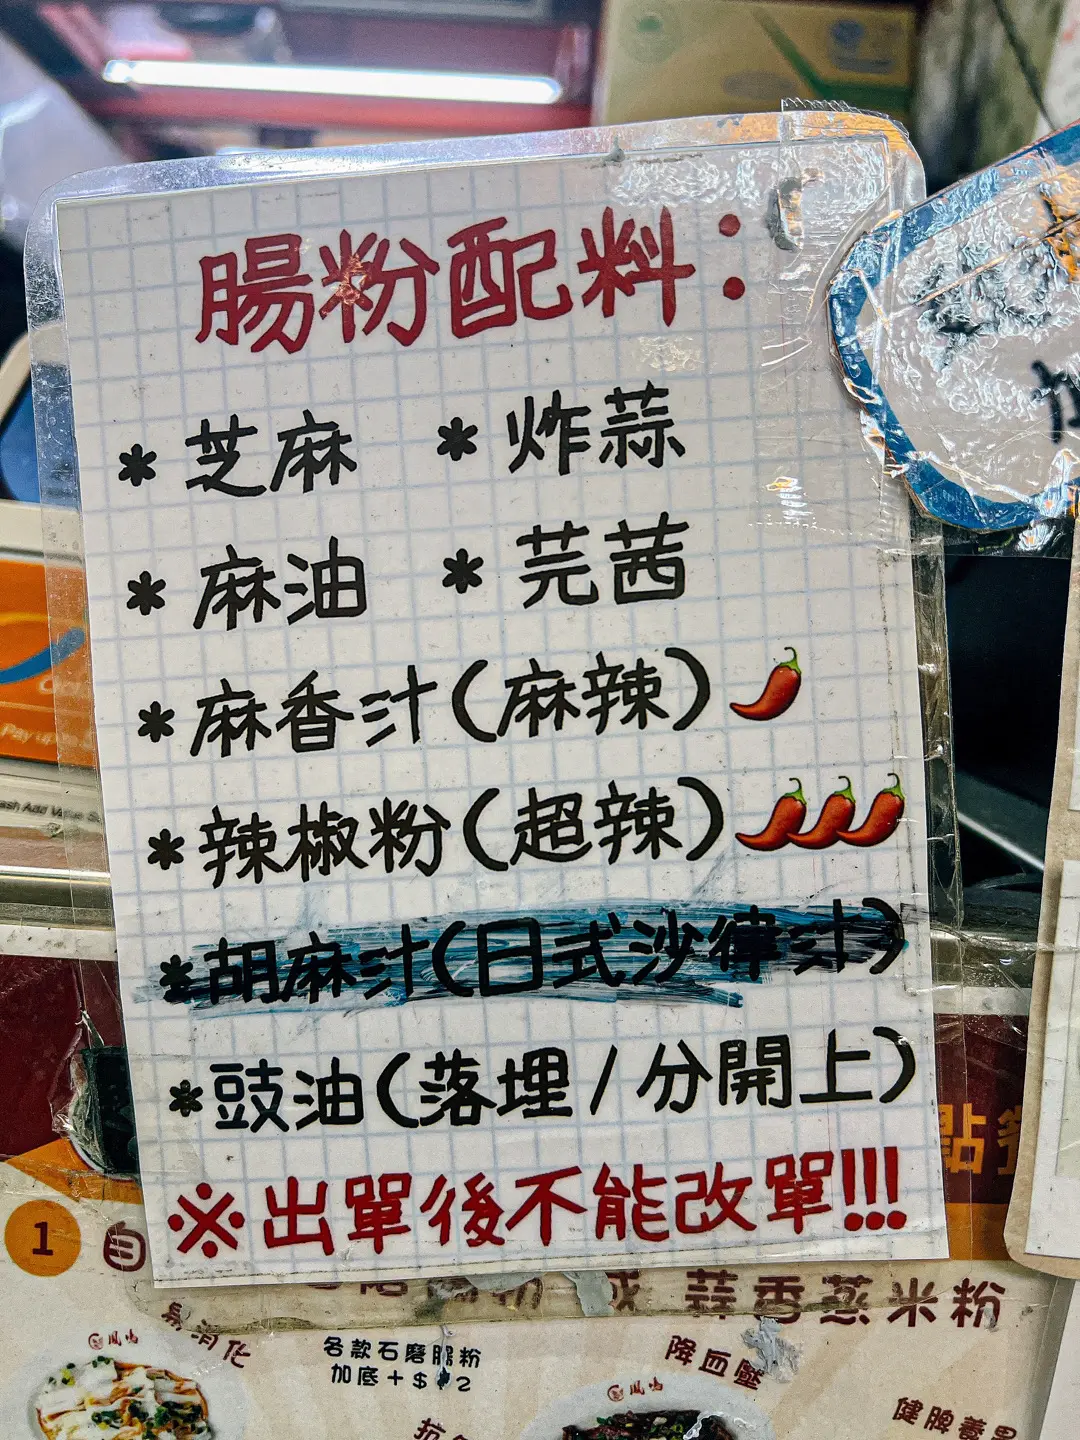 腸粉配料：
* 芝麻 * 炸蒜
* 麻油 * 芫茜
* 麻香汁(麻辣)
* 辣椒粉(超辣)
* 胡麻汁(日式沙律汁)
* 豉油(落埋/分開上)
※出單後不能改單!!!
點
1 自
蒜香蒸米粉
易消化
鳳鳴
各款石磨腸粉
加底+$ 2
降血壓
鳳鳴
健脾養胃
抗